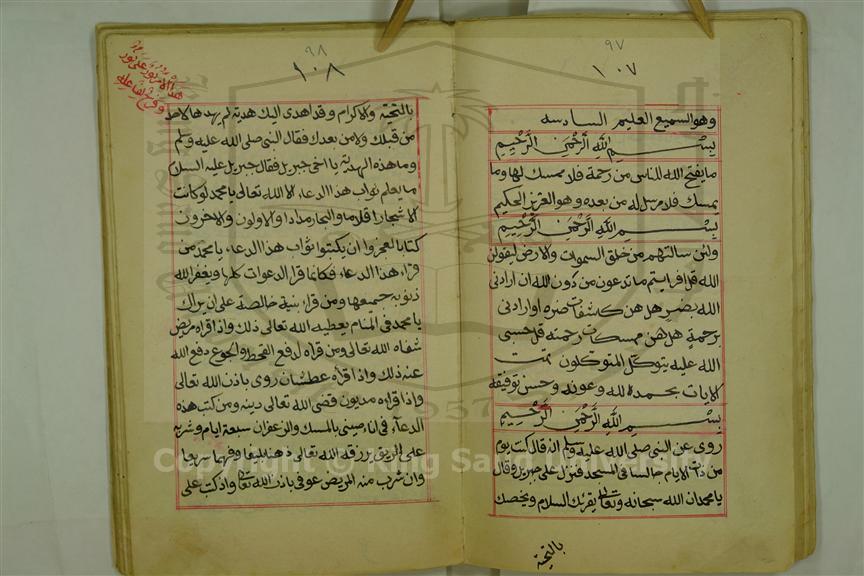 ٩٧
١٠٧
وهو السميع العليم السادسه
بسم الله الرحمن الرحيم
ما يفتح الله للناس من رحمة فلا ممسك لها وما
يمسك فلا مرسل له من بعده وهو العزيز الحكيم
بسم الله الرحمن الرحيم
ولئن سالتهم من خلق السموات والارض ليقولن
الله قل افرايتم ما تدعون من دون الله ان ارادني
الله بضر هل هن كاشفات ضره او ارادني
برحمة هل هن ممسكات رحمته قل حسبي
الله عليه يتوكل المتوكلون تمت
الايات بحمد الله وعونه وحسن توفيقه
بسم الله الرحمن الرحيم
روى عن النبي صلى الله عليه وسلم انه قال كنت يوم
من ذات الايام جالسا في المسجد فنزل على جبريل وقال
يا محمد ان الله سبحانه وتعالى يقرئك السلام ويخصك
بالتحية
٩٨
١٠٨
هذا الامر نور على نور
بالتحية والاكرام وقد اهدى اليك هدية لم يهدها لاحد
من قبلك ولا من بعدك فقال النبي صلى الله عليه وسلم
وما هذه الهدية يا اخي جبريل فقال جبريل عليه السلام
ما يعلم ثواب هذا الدعاء الا الله تعالى يا محمد لو كانت
الاشجار اقلاما والبحار مدادا والاولون والاخرون
كتابا لعجزوا ان يكتبوا ثواب هذا الدعاء يا محمد من
قراء هذا الدعاء فكانما قرا الدعوات كلها ويغفر الله
ذنوبه جميعها ومن قراء بنية خالصة على ان يراك
يا محمد في المنام يعطيه الله تعالى ذلك واذا قراه مريض
شفاه الله تعالى ومن قراه لدفع القحط والجوع دفع الله
عنه ذلك واذا قراه عطشان روى باذن الله تعالى
واذا قراءه مديون قضى الله تعالى دينه ومن كتب هذه
الدعاء في انا صيني بالمسك والزعفران سبعة ايام وشربه
على الريق يرزقه الله تعالى ذهنا بليغا وفهما سريعا
وان شرب منه المريض عوفي باذن الله تعالى واذ كتب على
1957
Copyright © King Saud University